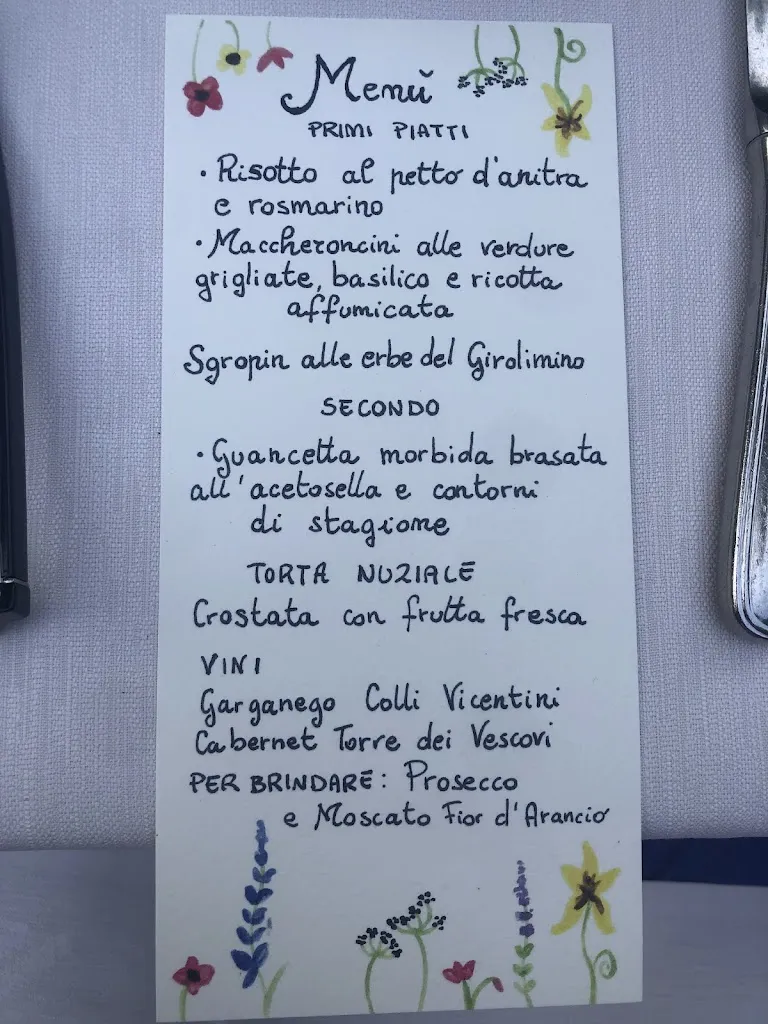 Menù
PRIMI PIATTI
· Risotto al petto d'anitra
e rosmarino
· Maccheroncini alle verdure
grigliate, basilico e ricotta
affumicata
Sgropin alle erbe del Girolimino
SECONDO
· Guancetta morbida brasata
all'acetosella e contorni
di stagione
TORTA NUZIALE
Crostata con frutta fresca
VINI
Garganego Colli Vicentini
Cabernet Torre dei Vescovi
PER BRINDARE: Prosecco
e Moscato Fior d'Arancio